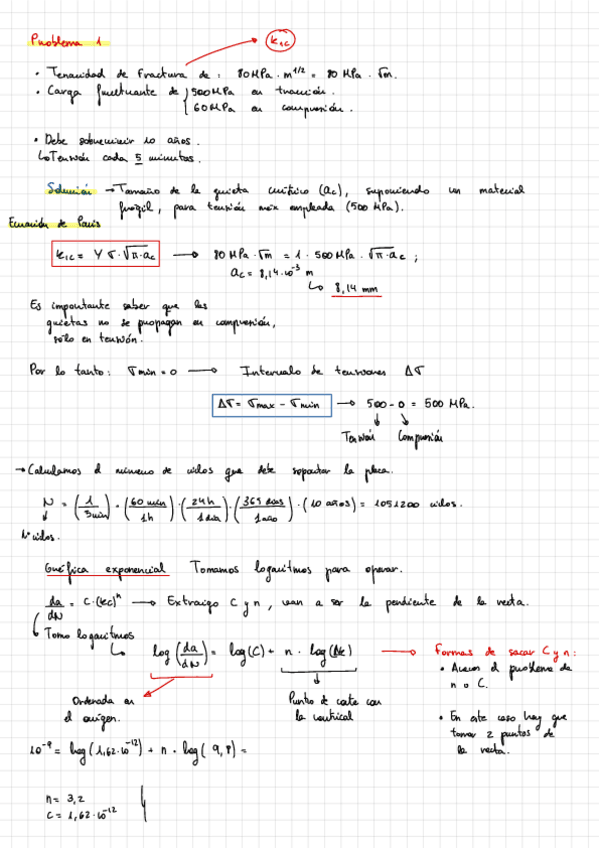 Problema 1
K1c
• Tenacidad de Fractura de: 80 MPa · m^1/2 = 80 MPa · √m.
• Carga fluctuante de { 500 MPa en tracción.
60 MPa en compresión.
• Debe sobrevivir 10 años.
↳ Tensión cada 5 minutos.
Solución → Tamaño de la grieta crítico (ac), suponiendo un material
frágil, para tensión max empleada (500 MPa).
Ecuación de Paris
K1c = Y σ · √π·ac → 80 MPa · √m = 1 · 500 MPa · √π·ac ;
ac = 8,14·10^-3 m
↳ 8,14 mm
Es importante saber que las
grietas no se propagan en compresión,
sólo en tensión.
Por lo tanto: σmin = 0 → Intervalo de tensiones Δσ
Δσ = σmax - σmin → 500 - 0 = 500 MPa.
Tensión Compresión
→ Calculamos el número de ciclos que debe soportar la placa.
N = (1/5min) · (60 min/1h) · (24h/1 dia) · (365 dias/1 año) · (10 años) = 1051200 ciclos.
Nº ciclos.
Gráfica exponencial Tomamos logaritmos para operar.
da/dN = C·(kc)^n → Extraigo C y n, van a ser la pendiente de la recta.
Tomo logaritmos
↳ log (da/dN) = log(C) + n · log(Δk) → Formas de sacar C y n:
• Avecen el problema da
n o C.
Ordenada en
el origen.
Punto de corte con
la vertical
• En este caso hay que
tomar 2 puntos de
la recta.
10^-9 = log(1,62·10^-12) + n · log( 9,8) =
n = 3,2
C = 1,62·10^-12